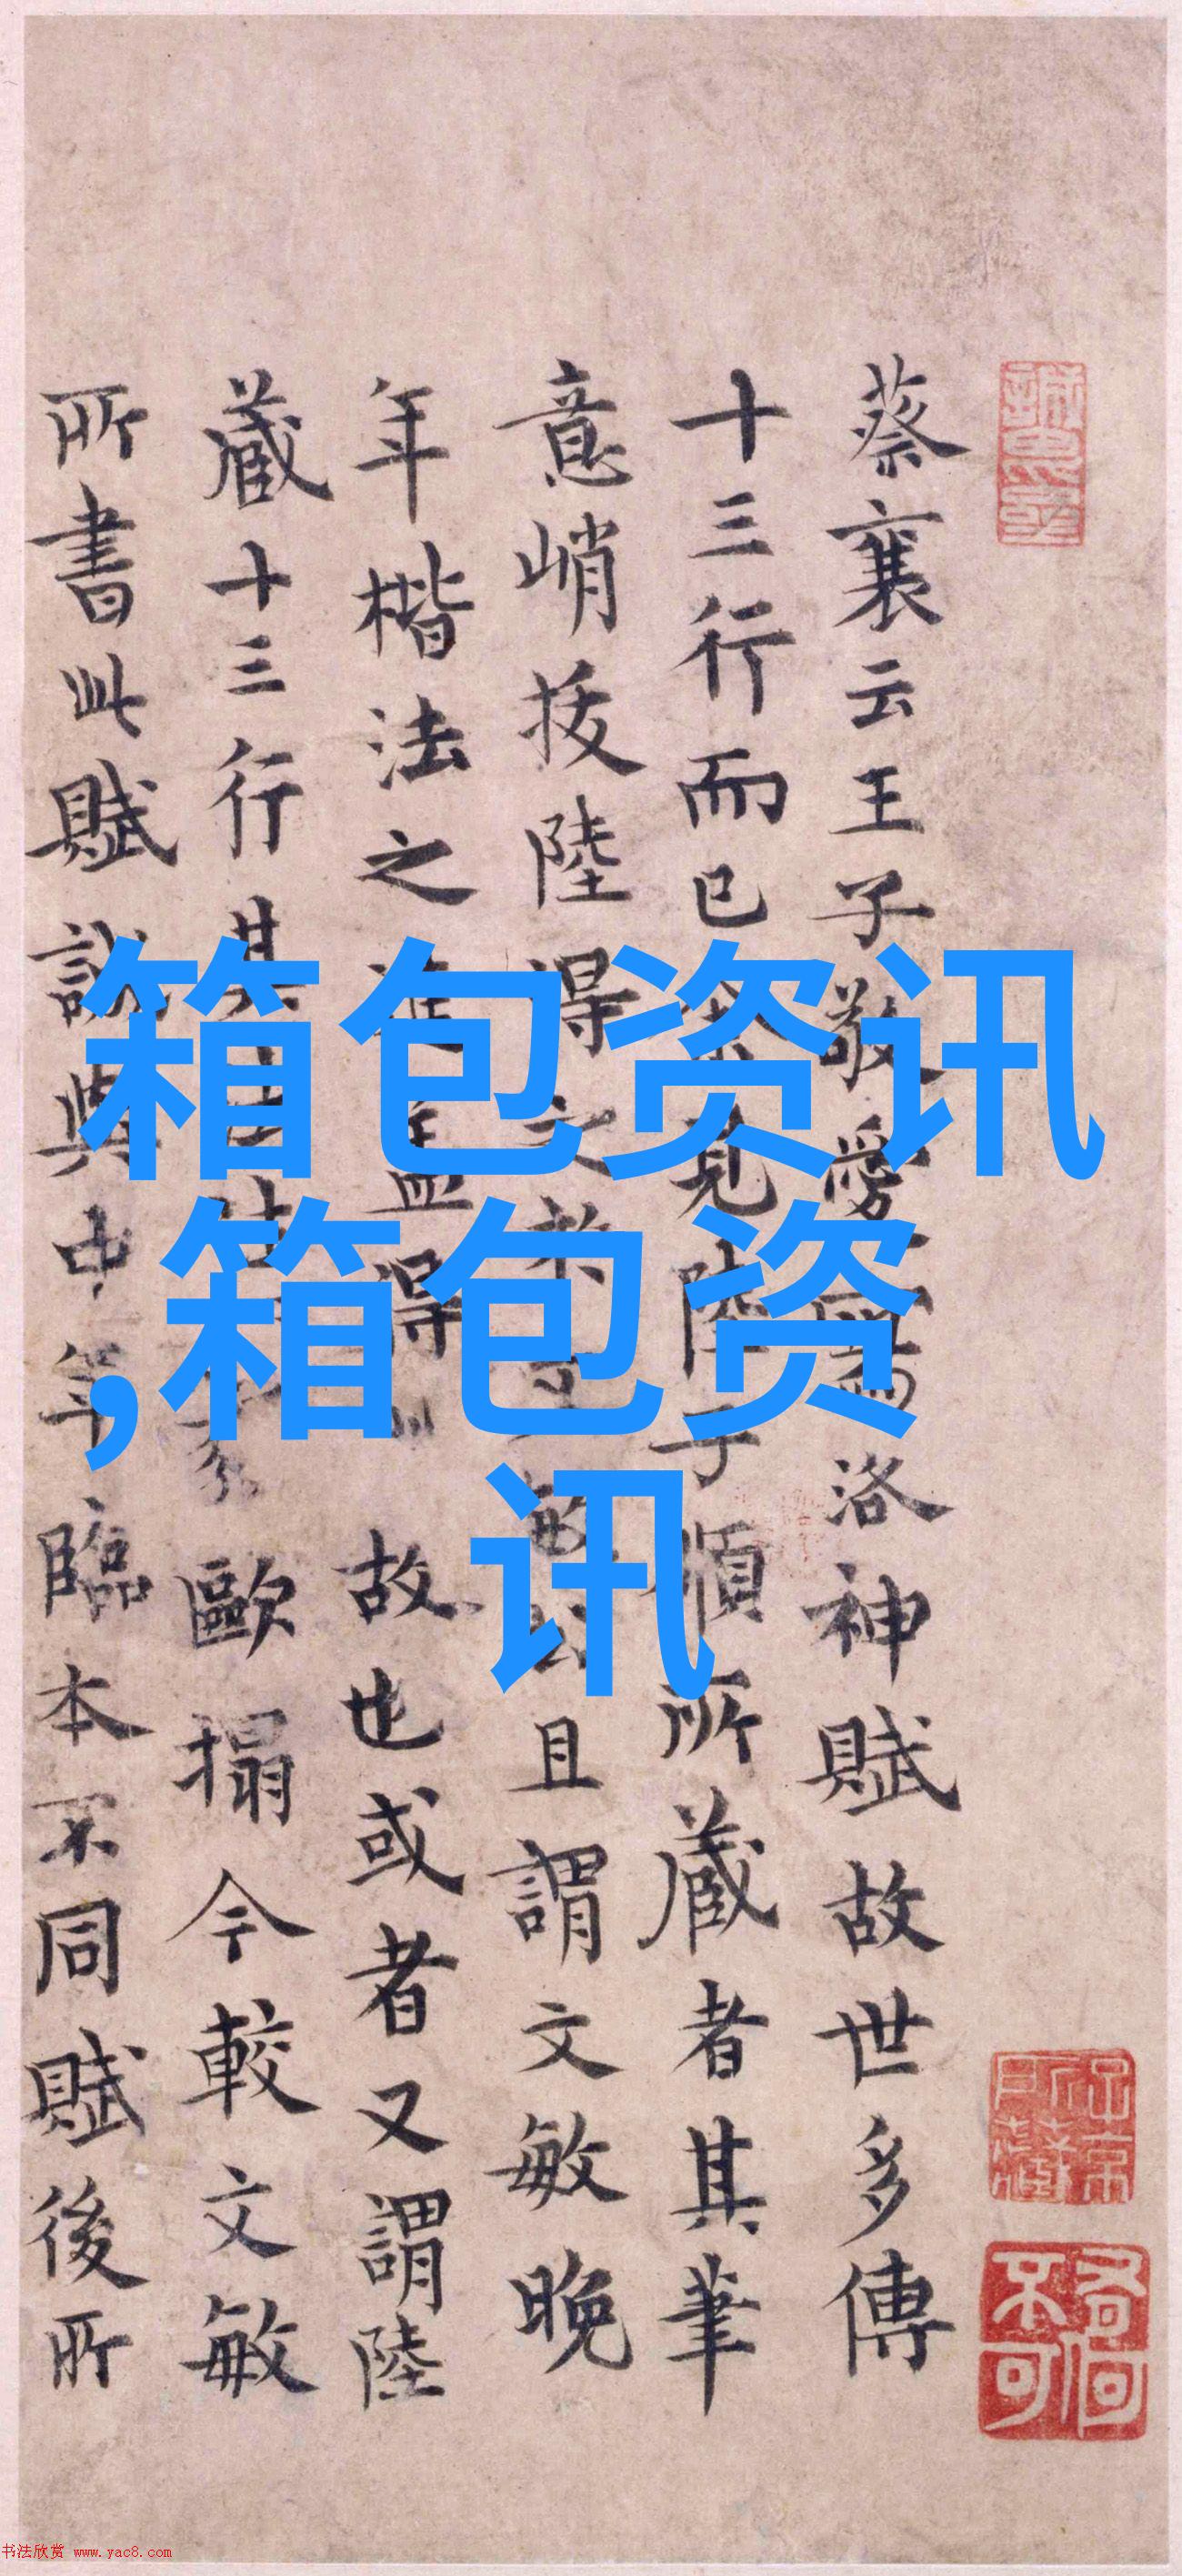 蔡襄云王子敬愛書洛神賦故世多傳
十三行而已 見陸子順所蔵者其筆
意峭拔陸得文敏 且謂文敏晚
年楷法之 益得 故也或者又謂陸
蔵十三行其 歐搨今較文敏
所書此賦 與中年臨本不同賦後所
箱包资讯
,箱包资
讯
书法欣赏 www.yac8.com